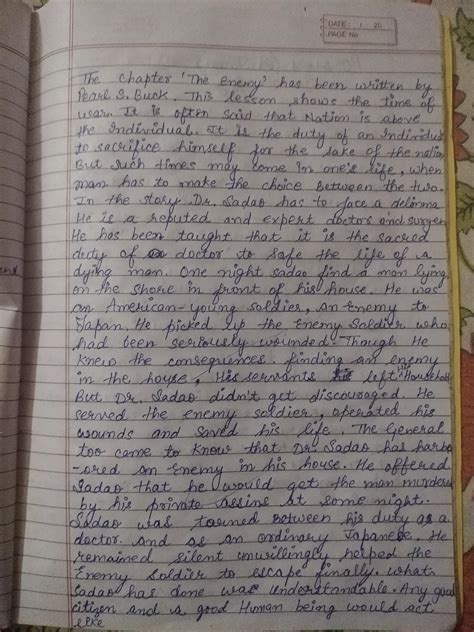 DATE: / 20
PAGE No
The chapter 'The Enemy' has been written by
Pearl S. Buck. This lesson shows the time of
war. It is often said that Nation is above
the individual. It is the duty of an Individual
to sacrifice himself for the sake of the nation
But such times may come in one's life, when
man has to make the choice between the two.
In the story Dr. Sadao has to face a delimma
He is a reputed and expert doctors and surgen
He has been taught that it is the sacred
duty of doctor to safe the life of a
dying man. One night sadao find a man lying
on the shore in front of his house. He was
an American-young soldier, an enemy to
Japan. He picked up the Enemy soldier who
had been seriously wounded. Though He
knew the consequences. finding an enemy
in the house, His servants left his Household
But Dr. Sadao didn't get discouraged. He
served the enemy soldier, operated his
wounds and saved his life. The General
too came to know that Dr. Sadao has harbo
-ored an enemy in his house. He offered
Sadao that he would get the man murdered
by his private assins at some night.
Sadao was torned between his duty as a
doctor and as an ordinary Japanese. He
remained silent unwillingly helped the
Enemy Soldier to escape finally. what
Sadao has done was understandable. Any good
citizen and a good Human being would act
like